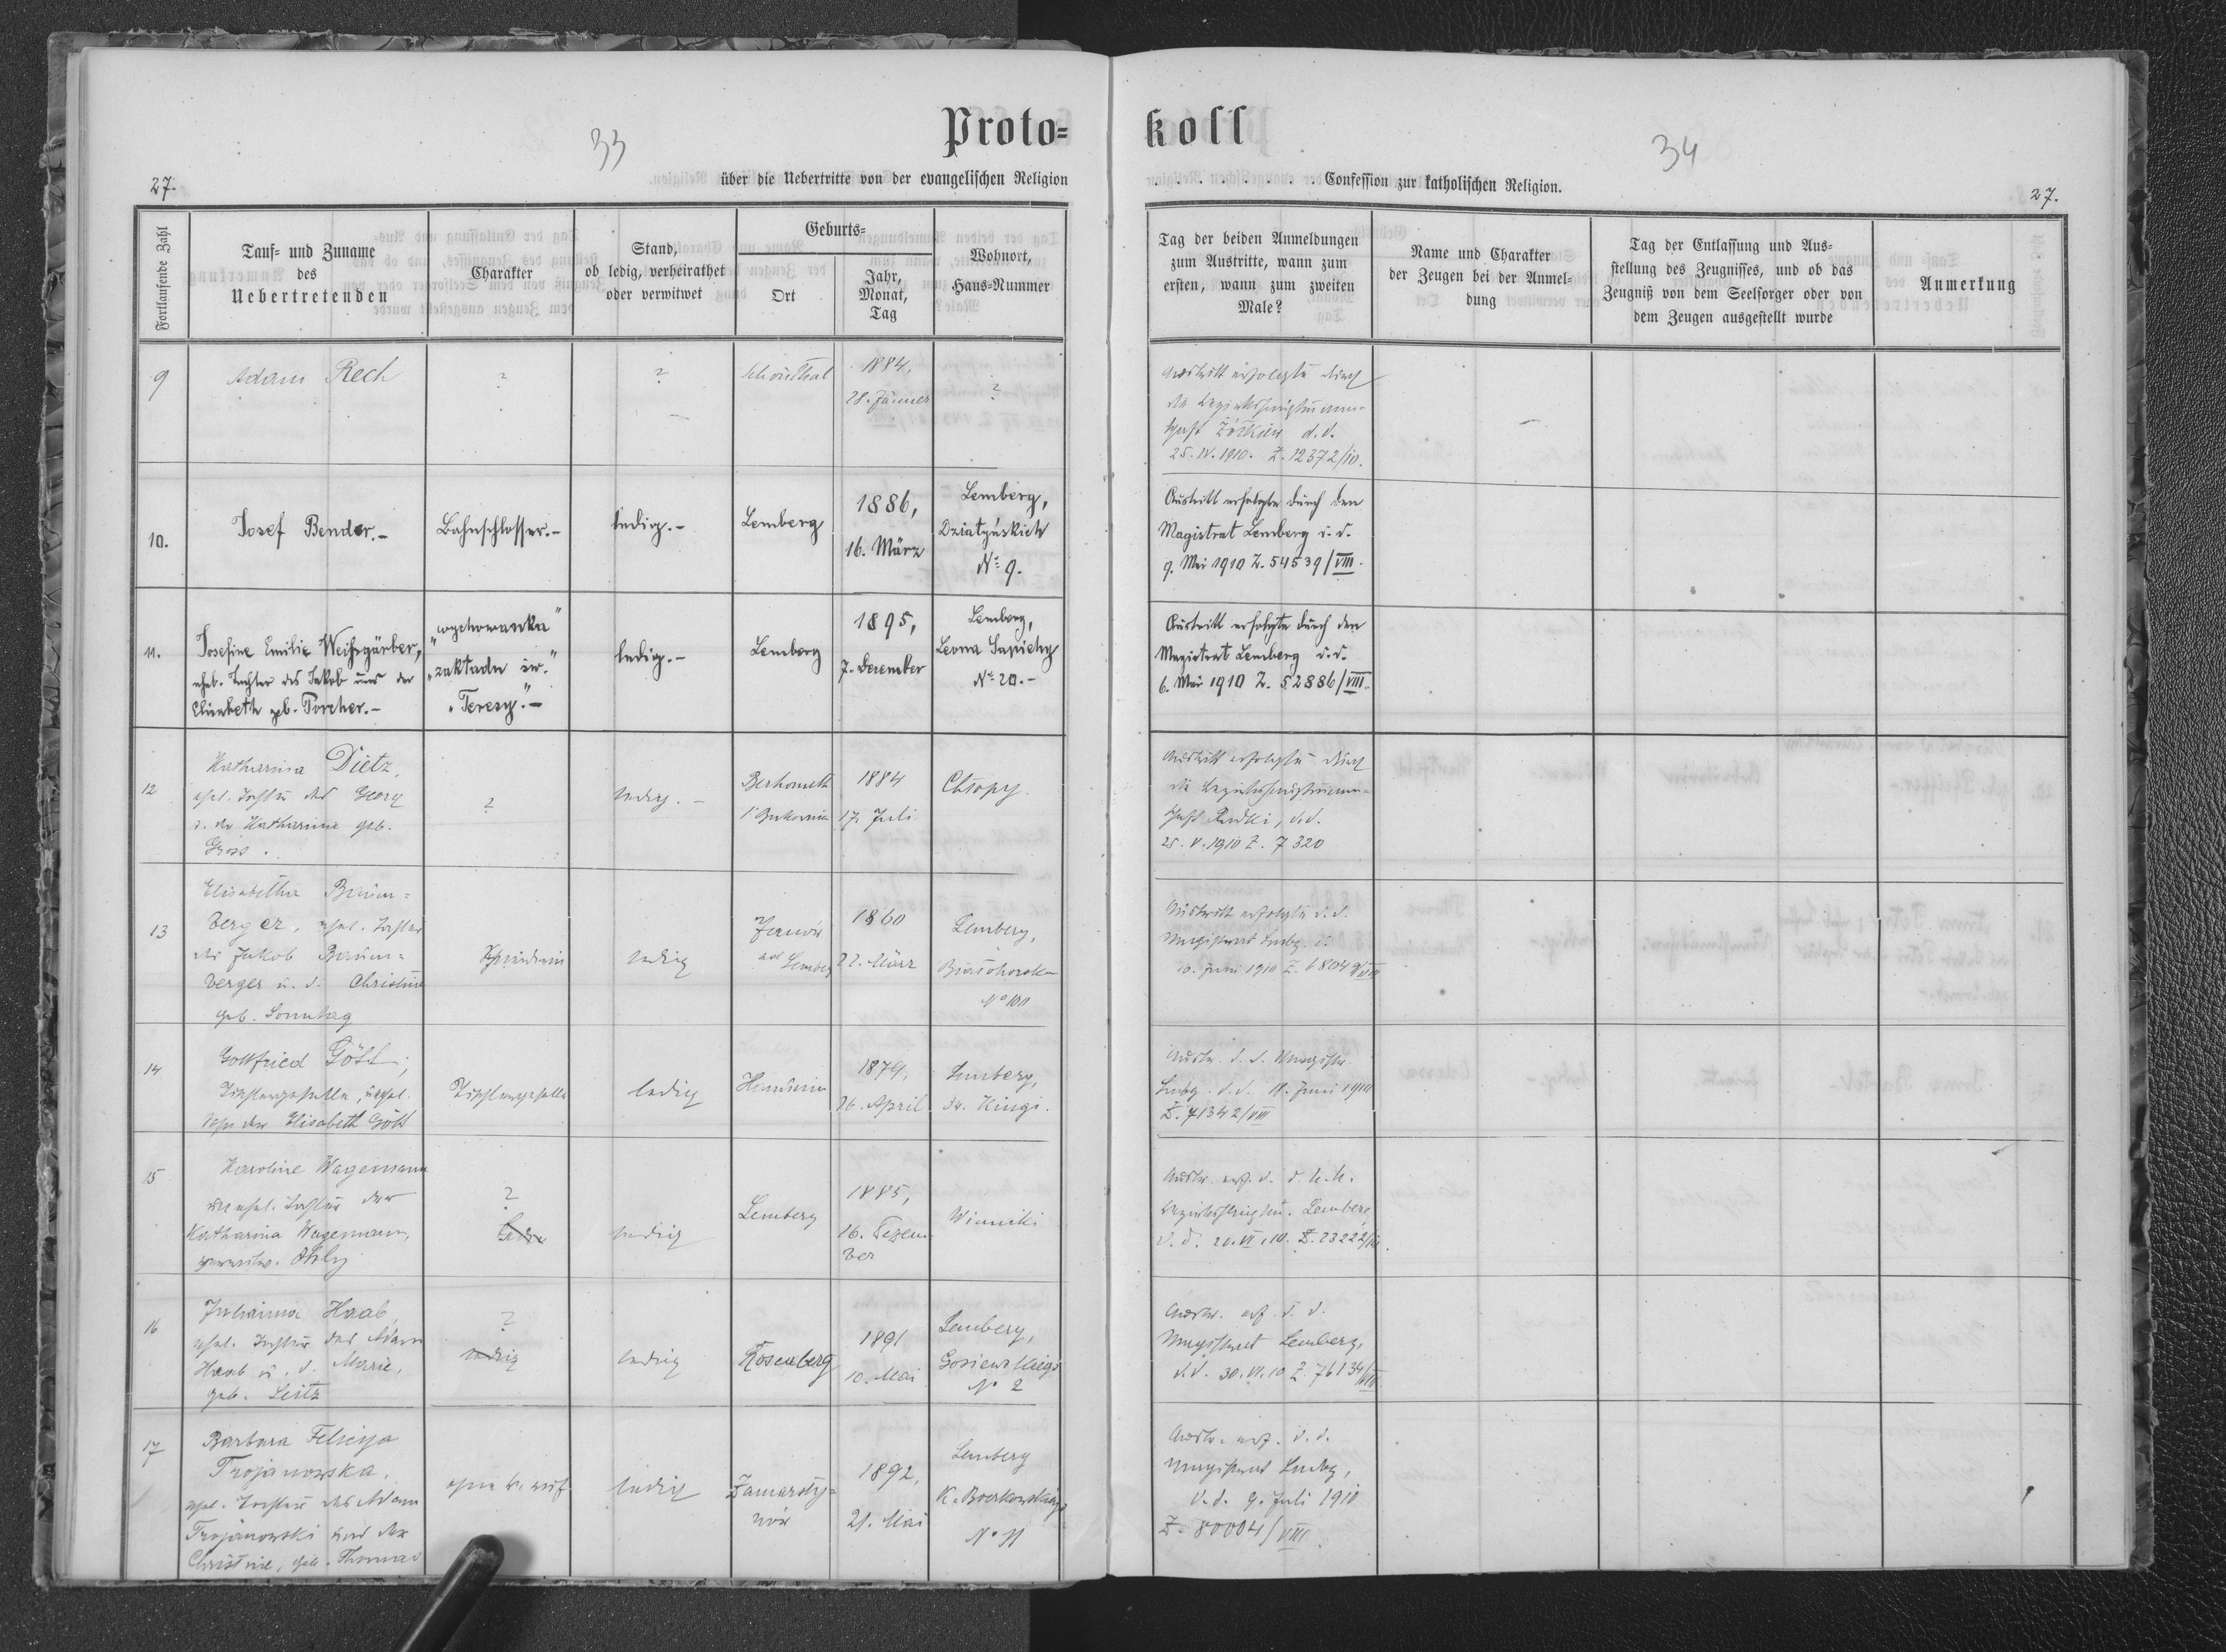 33
Proto=
27.
über die Uebertritte von der evangelischen Religion
Fortlaufende Zahl
Tauf= und Zuname
des
Uebertretenden
Charakter
Stand,
ob ledig, verheirathet
oder verwitwet
Geburts=
Ort
Jahr,
Monat,
Tag
Wohnort,
Haus=Nummer
9
Adam Rech
?
?
Schönthal
1884,
28. Jänner
?
10.
Josef Bender.-
Bahnschlosser.-
ledig.-
Lemberg
1886,
16. März
Lemberg,
Nº 9.
11.
Josefine Emilie Weihsgärber,
ehel. Tochter des Jakob und der
Elisabeth geb.
„wychowanka"
„zakładu św."
„Teresy".-
ledig.-
Lemberg
1895,
7. Dezember
Lemberg,
Leona Sapiehy
Nº 20.-
12
Katharina Dietz,
ehel. Tochter des Georg
u. der Katharina geb.
Gross.
?
ledig.-
Berhometh
17. Juli
1884
Chłopy.
13
Elisabetha Baum=
berger, ehel. Tochter
des Jakob Baum=
berger u. d. Christine
geb. Sonntag
Schneiderin
ledig
Janów
ad Lemberg
1860
22. März
Lemberg,
Nº 100
14
Gottfried Gött,
Tischlergeselle, unehel.
Sohn der Elisabeth Gött
Tischlergeselle
ledig
1879,
26. April
Lemberg,
św. Kingi.
15
Karoline Wagemann
unehel. Tochter der
Katharina Wagemann,
?
ledig
Lemberg
1885,
16. Dezem=
ber
Winniki
16
Julianna Haab,
ehel. Tochter des Adam
Haab u. d. Marie,
geb. Seitz
?
ledig
ledig
Rosenberg
1891
10. Mai
Lemberg,
Gosiewskiego
Nº 2
17
Barbara Felicya
Trojanowska,
ehel. Tochter des Adam
Trojanowski und der
Christine, geb. Thomas
ohne Beruf
ledig
Zamarsty=
nów
1892,
21. Mai
Lemberg
K. Boczkowskiego
Nº 11
koll
34
. . . . . . . . . . . Confession zur katholischen Religion.
27.
Tag der beiden Anmeldungen
zum Austritte, wann zum
ersten, wann zum zweiten
Male?
Name und Charakter
der Zeugen bei der Anmel=
dung
Tag der Entlassung und Aus=
stellung des Zeugnisses, und ob das
Zeugniß von dem Seelsorger oder von
dem Zeugen ausgestellt wurde
Anmerkung
Austritt erfolgte durch
die Bezirkshauptmann=
schaft Żółkiew d.d.
25.IV.1910. Z. 12372/10.
Austritt erfolgte durch den
Magistrat Lemberg d.d.
9. Mai 1910 Z. 54539/VIII.
Austritt erfolgte durch den
Magistrat Lemberg d.d.
6. Mai 1910 Z. 52886/VIII.
Austritt erfolgte durch
die Bezirkshauptmann=
schaft Rudki, d.d.
25.V.1910 Z. 7320
Austritt erfolgte d.d.
Magistrat Lembg. d.
10. Juni 1910 Z. 68049/VIII
Austr. d. d. Magistr.
Lembg. d.d. 18. Juni 1910
Z. 71342/VIII
Austr. erf. d. d. k.k.
Bezirkshauptm. Lemberg
d.d. 20.VI.10. Z. 23222/10.
Austr. erf. d. d.
Magistrat Lemberg,
d.d. 30.VI.10 Z. 76134/VIII
Austr. erf. d. d.
Magistrat Lembg,
d.d. 9. Juli 1910
Z. 80004/VIII.